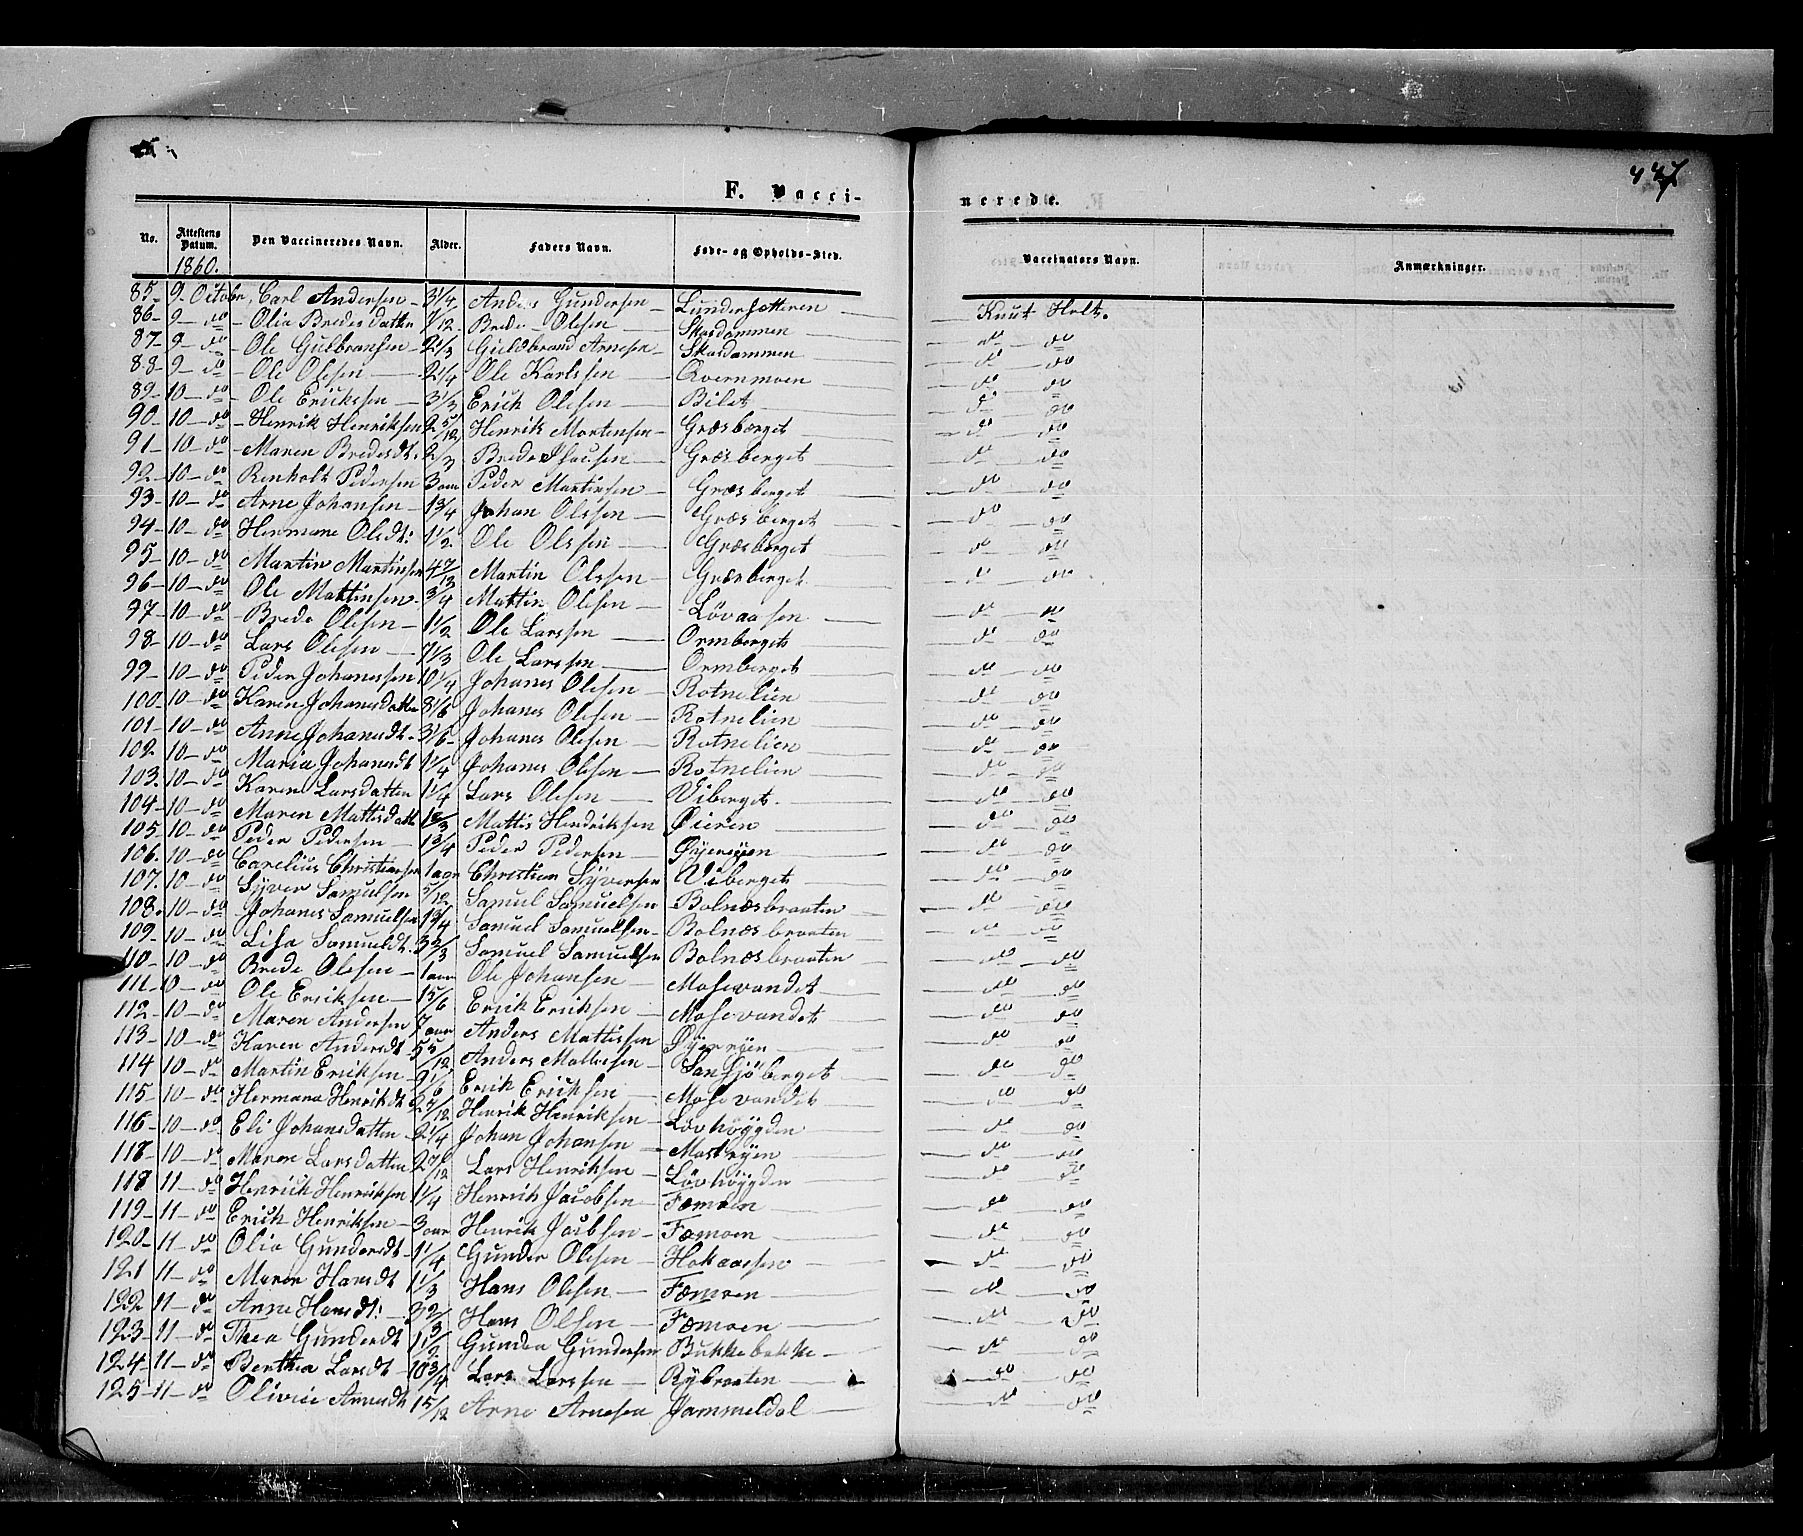 447
F. Vacci-
neredte.
No. Attestens Datum. Den Vaccineredes Navn. Alder. Faders Navn. Føde- og Opholds-Sted. Vaccinators Navn. Anmærkninger.
1860.
85- 9- Octobr, Carl Andersen- 3 1/4 Anders Gundersen - Lundersætteren Knut Holt.
86- 9- do - Olia Bredesdatter 7/12 Brede Olesen Skasdammen do do
87- 9- do - Ole Gulbransen- 2 1/3 Guldbrand Arnesen- Skasdammen do do
88- 9- do Ole Olesen 2 1/4 Ole Karlssen Qvernmoen do do
89- 10- do Ole Erickssen - 3 1/3 Erick Olesen Bilet do do
90- 10- do - Henrik Henriksen 2 5/12 Henrik Mortensen- Græsberget do do
91- 10- do - Maren Bredesdt. 2/3 Brede Græsberget do do
92- 10- do Renholt Pedersen 3 aar Peder Martinsen Græsberget do do
93- 10- do Arne Johansen- 1 3/4 Johan Olssen Græsberget do do
94- 10- do Hermane Olsdt: 1 1/2 Ole Olssen Græsberget do do
95- 10- do Martin Martinsen 4 7/12 Martin Olssen Græsberget do do
96- 10- do Ole Mattinsen- 3/4 Mattin Olesen Løvaasen do do
97- 10- do Brede Olesen - 1 1/2 Ole Larssen Ormberget do do
98- 10- do Lars Olesen 7 1/3 Ole Larssen Ormberget do do
99- 10- do Peder Johanessen 10 1/4 Johanes Olesen Rotnelien do do
100- 10- do Karen Johanesdatter 8 1/6 Johanes Olesen Rotnelien do do
101- 10- do Anne Johanesdt. 3 1/6 Johanes Olesen Rotnelien do do
102- 10- do Maria Johanesdt 1 1/4 Johanes Olesen Rotnelien do do
103. 10- do Karen Larsdatter 1 1/4 Lars Olesen Viberget. do do
104- 10- do Maren Mattisdatter Mattis Hendriksen Øieren do do
105- 10- do Peder Pedersen 1 3/4 Peder Pedersen Øyerøien do do
106. 10- do Carelius Christiansen 1 aar Christian Syversen Viberget do do
107. 10- do Syver Samuelsen 5/12 Samuel Samuelsen Bolnæsbraaten do do
108. 10- do Johanes Samuelsen 1 3/4 Samuel Samuelsen- Bolnæsbraaten do do
109- 10- do Lisa Samueldt. 3 2/3 Samuel Samuelsen Bolnæsbraaten do do
110- 10- do Brede Olesen - 1 aar Ole Johansen Mosevandet do do
111- 0- do Ole Eriksen 1 5/6 Erik Eriksen Mosevandet do do
112- 10- do Maren Andersen 7 aar Anders Mattissen Øyerøyen do do
113- 10- do Karen Andersdt 5 5/12 Anders Sansjöberget do do
114 10- do Martin Eriksen- 9 1/6 Erik Eriksen Mosevandet do do
115- 10- do Hermana Henrikdt Henrik Henriksen Løvhøygden do do
116- 10- do Eli Johansdatter 2 1/4 Johan Johansen Mosrøyen do do
118- 10- do Maren Larsdatter 2 7/12 Lars Henriksen Løvhøygden do do
118 11- do Henrick Henriksen 1 1/4 Henrich Jacobsen Fæmoen do do
119- 11- do Erick Henriksen- 3 aar Henrik Jacobsen Fæmoen do do
120- 11- do Olia Gundersdt- 1 1/4 Gunder Olesen Hokaasen do do
121 11- do Maren Hansdt 1 1/3 Hans Olesen Fæmoen do do
122 11- do Anne Hansdt: 3 2/3 Hans Olsen Fæmoen do do
123- 11- do Thea Gunderdt 1 1/2 Gunder Gundersen Bukkebakke do do
124- 11- do Berthea Larsdt- 10 3/4 Lars Larssen Rybraaten do do
125- 11- do Olivie Arnesdt 1 5/12 Arne Arnesen Jammeldal do do